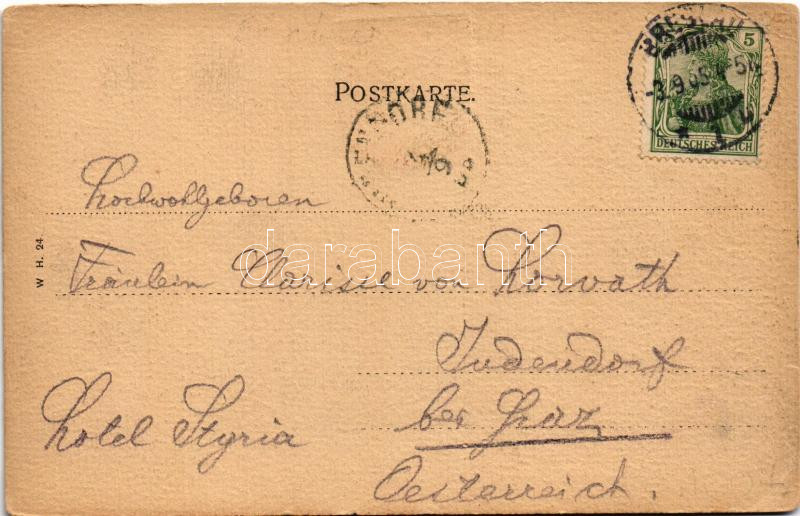 POSTKARTE.
BRESLAU
-3.9.05.
* 1
5
DEUTSCHES REICH
Hochwohlgeboren
Fräulein Clarisse von Horvath
Judendorf
bei Graz
Hotel Styria
Oesterreich.
W H. 24.
darabanth